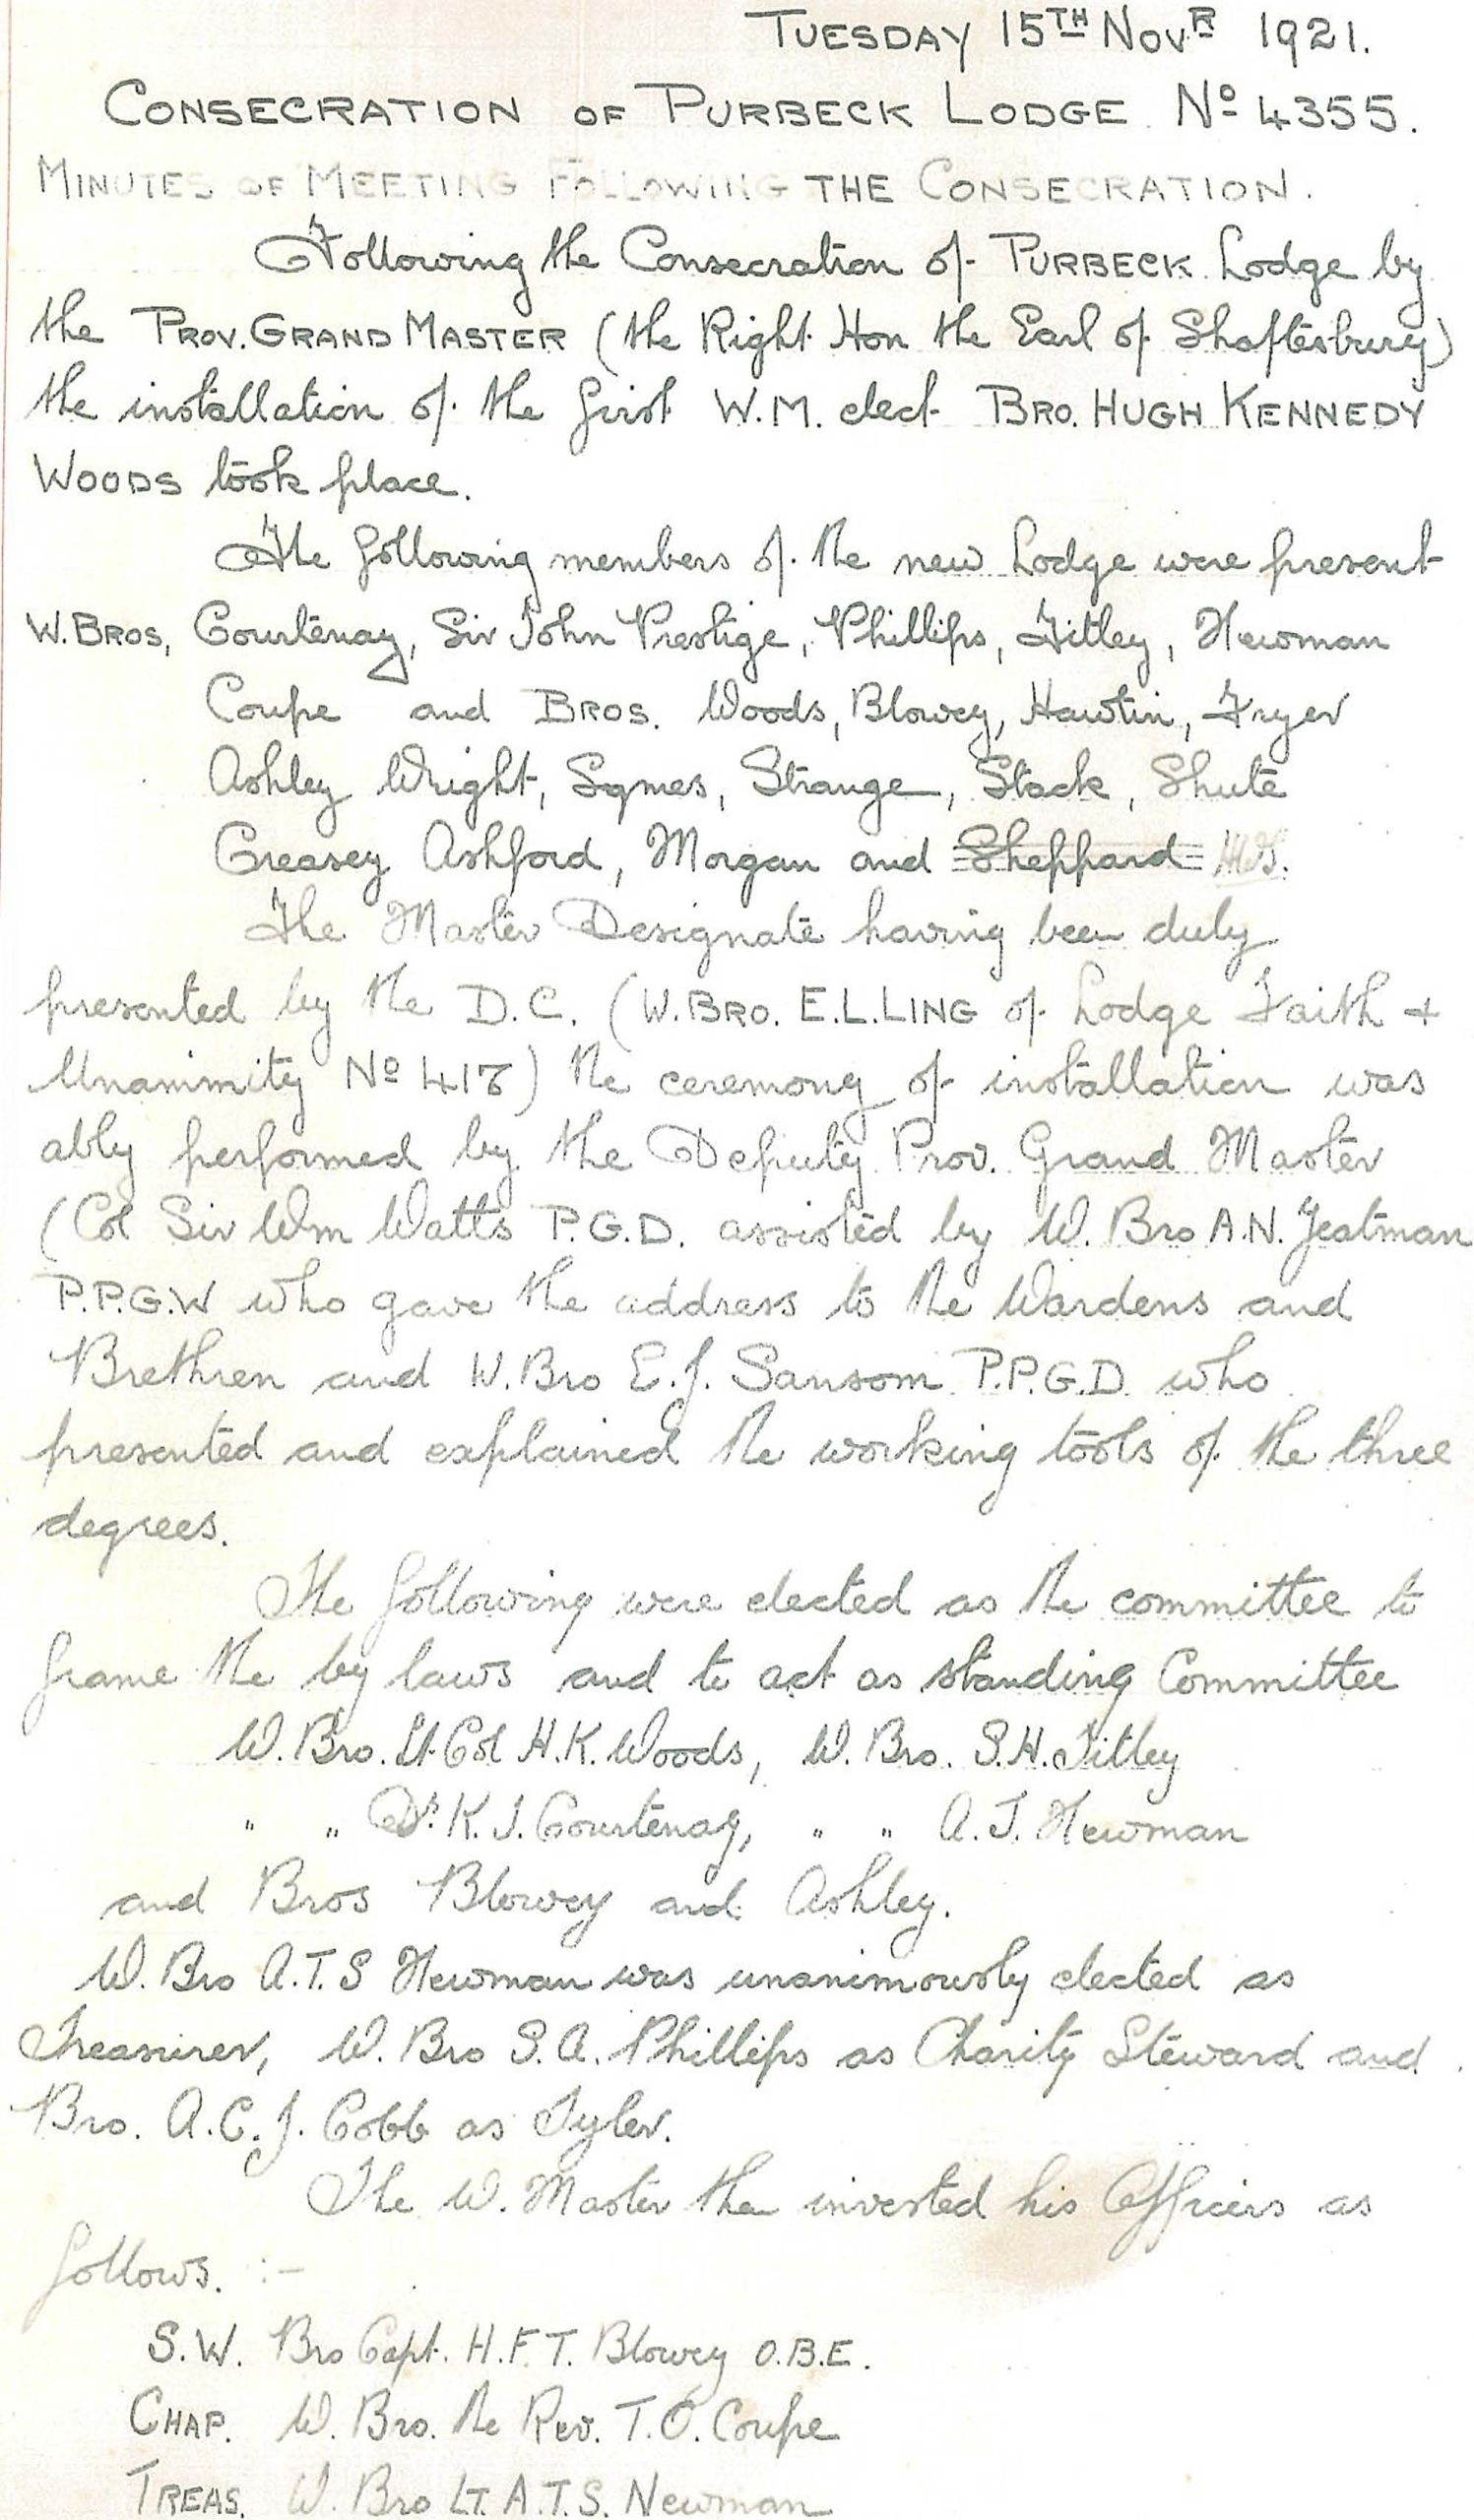 TUESDAY 15TH NOVR 1921.
CONSECRATION OF PURBECK LODGE Nº 4355.
MINUTES OF MEETING FOLLOWING THE CONSECRATION.
Following the Consecration of PURBECK Lodge by
the PROV. GRAND MASTER (the Right Hon the Earl of Shaftesbury)
the installation of the first W.M. elect BRO. HUGH KENNEDY
WOODS took place.
The following members of the new Lodge were present
W. BROS, Courtenay, Sir John Prestige, Phillips, Titley, Newman
Coupe and BROS. Woods, Blowey, Hawtin, Fryer
Ashley Wright, Symes, Strange, Stack, Shute
Creasey Ashford, Morgan and Sheppard
The Master Designate having been duly
presented by the D.C. (W. BRO. E.L. LING of Lodge Faith +
Unanimity Nº 417) the ceremony of installation was
ably performed by the Deputy Prov. Grand Master
(Col Sir Wm Watts P.G.D. assisted by W. Bro A.N. Yeatman
P.P.G.W who gave the address to the Wardens and
Brethren and W. Bro E.J. Sansom P.P.G.D. who
presented and explained the working tools of the three
degrees.
The following were elected as the committee to
frame the by laws and to act as standing Committee
W. Bro. Lt. Col H.K. Woods, W. Bro. S.H. Titley
" " Dr. K.J. Courtenay, " " A.T. Newman
and Bros Blowey and Ashley.
W. Bro A.T.S Newman was unanimously elected as
Treasurer, W. Bro S.A. Phillips as Charity Steward and
Bro. A.C.J. Cobb as Tyler.
The W. Master then invested his Officers as
follows. :-
S.W. Bro Capt. H.F.T. Blowey O.B.E.
CHAP. W. Bro. the Rev. T.O. Coupe
TREAS. W. Bro LT. A.T.S. Newman